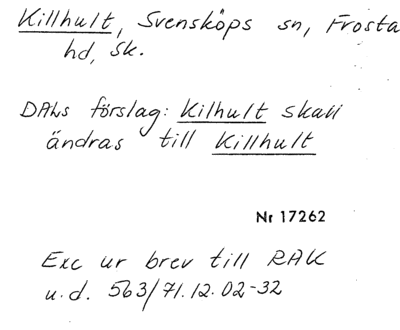 Killhult, Svensköps sn, Frosta
hd, Sk.
DALs förslag: Kilhult skall
ändras till Killhult
Nr 17262
Exc ur brev till RAK
u.d. 563/71.12.02-32